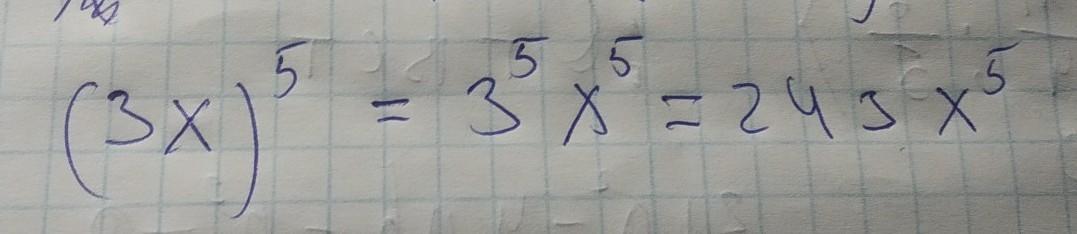 (3x)⁵ = 3⁵x⁵ = 243x⁵